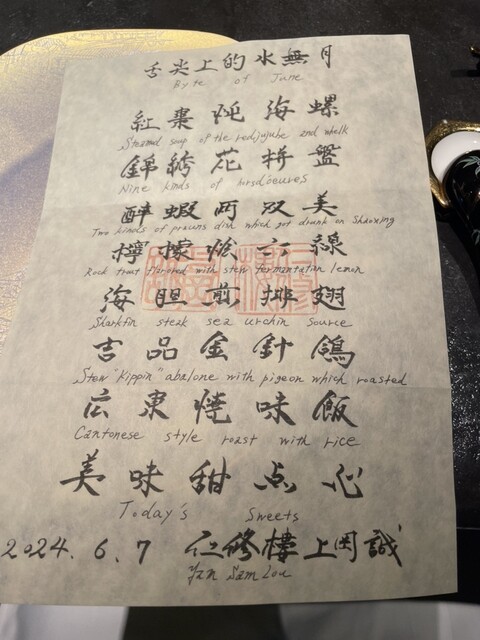 舌尖上的水無月
Byte of June
紅棗炖海螺
Steamed soup of the redjujube and whelk
錦綉花拼盤
Nine kinds of horsd'oeures
醉蝦両双美
Two kinds of prawns dish which got drunk on Shaoxing
檸檬烩六線
Rock trout flavored with stew fermentation lemon
海胆煎排翅
Sharkfin steak sea urchin source
吉品金針鴿
Stew "Kippin" abalone with pigeon which roasted
広東燒味飯
Cantonese style roast with rice
美味甜点心
Today's Sweets
2024. 6. 7 仁修樓 上岡誠
Yan Sam Lou